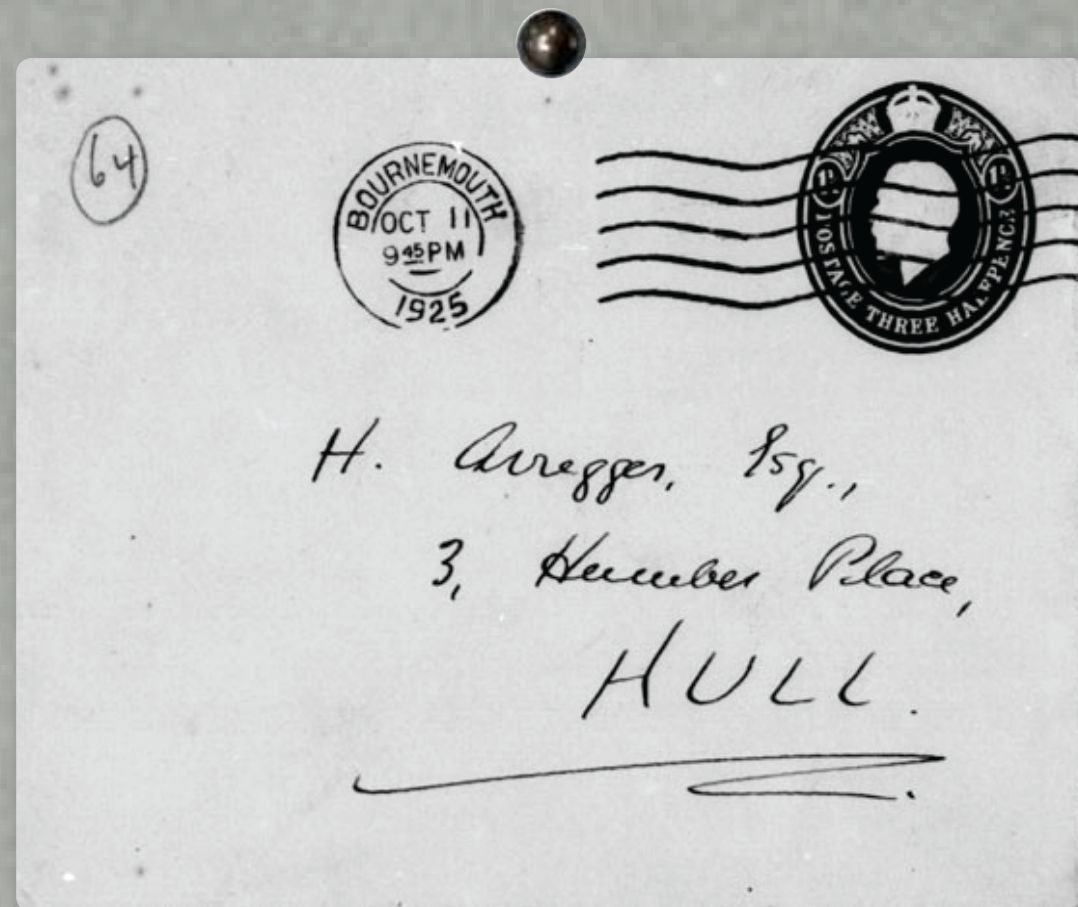 64
BOURNEMOUTH
OCT 11
9 45 PM
1925
1½D 1½D
POSTAGE THREE HALFPENCE
H. Arregger, Esq.,
3, Humber Place,
HULL.